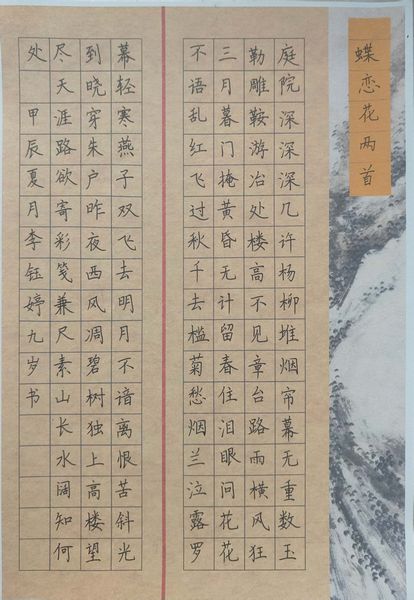 蝶恋花两首
庭院深深深几许杨柳堆烟帘幕无重数玉
勒雕鞍游冶处楼高不见章台路雨横风狂
三月暮门掩黄昏无计留春住泪眼问花花
不语乱红飞过秋千去槛菊愁烟兰泣露罗
幕轻寒燕子双飞去明月不谙离恨苦斜光
到晓穿朱户昨夜西风凋碧树独上高楼望
尽天涯路欲寄彩笺兼尺素山长水阔知何
处 甲辰夏月李钰婷九岁书